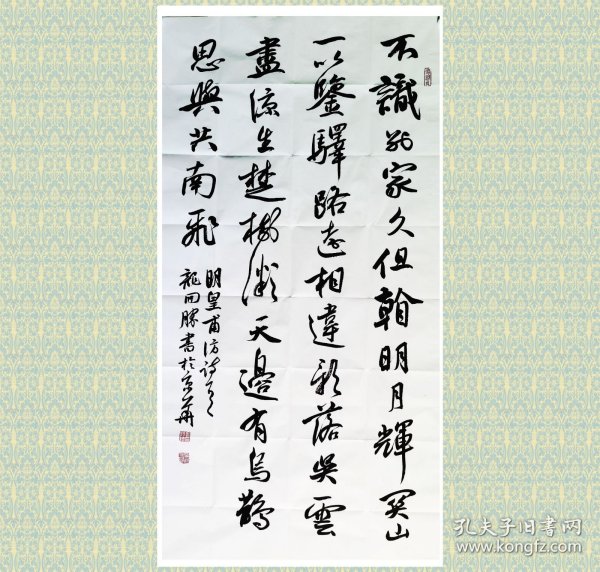 不識別家久但翰明月輝関山
一以鑒驛路遠相違影落吳雲
盡涼生楚樹微天邊有烏鵲
思與共南飛
明皇甫汸詩一首
龍開勝書於京華
孔夫子旧书网
www.kongfz.com